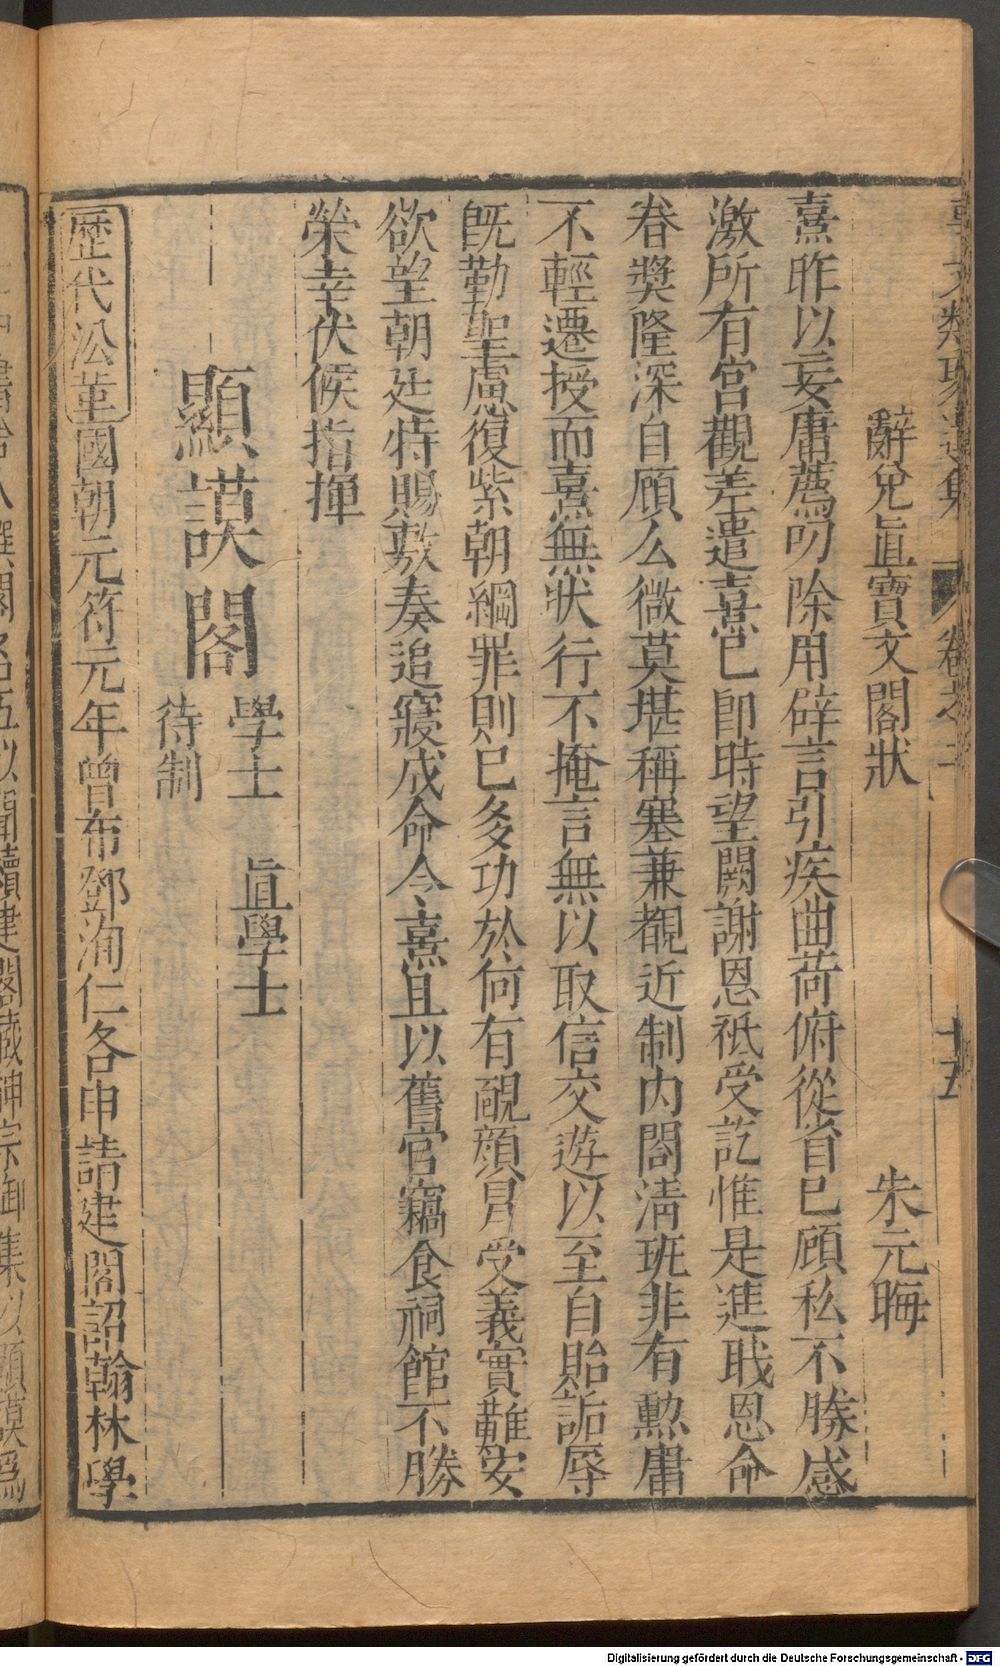 辭免直寶文閣狀　朱元晦
熹昨以妄庸薦叨除用辟言引疾曲荷俯從省已顧私不勝感
激所有宮觀差遣熹已卽時望闕謝恩祗受訖惟是進職恩命
眷獎隆深自顧么微莫堪稱塞兼覩近制内閣清班非有勲庸
不輕遷授而熹無狀行不掩言無以取信交遊以至自貽詬辱
旣勤聖慮復紊朝綱罪則已多功於何有靦顔冐受義實難安
欲望朝廷特賜敷奏追寢成命令熹且以舊官竊食祠館不勝
榮幸伏候指揮
顯謨閣　學士　直學士
待制
歷代沿革國朝元符元年曾布鄧洵仁各申請建閣詔翰林學
卷之二
十五
閣名五以聞續建閣藏神宗御集以顯謨爲
Digitalisierung gefördert durch die Deutsche Forschungsgemeinschaft - DFG